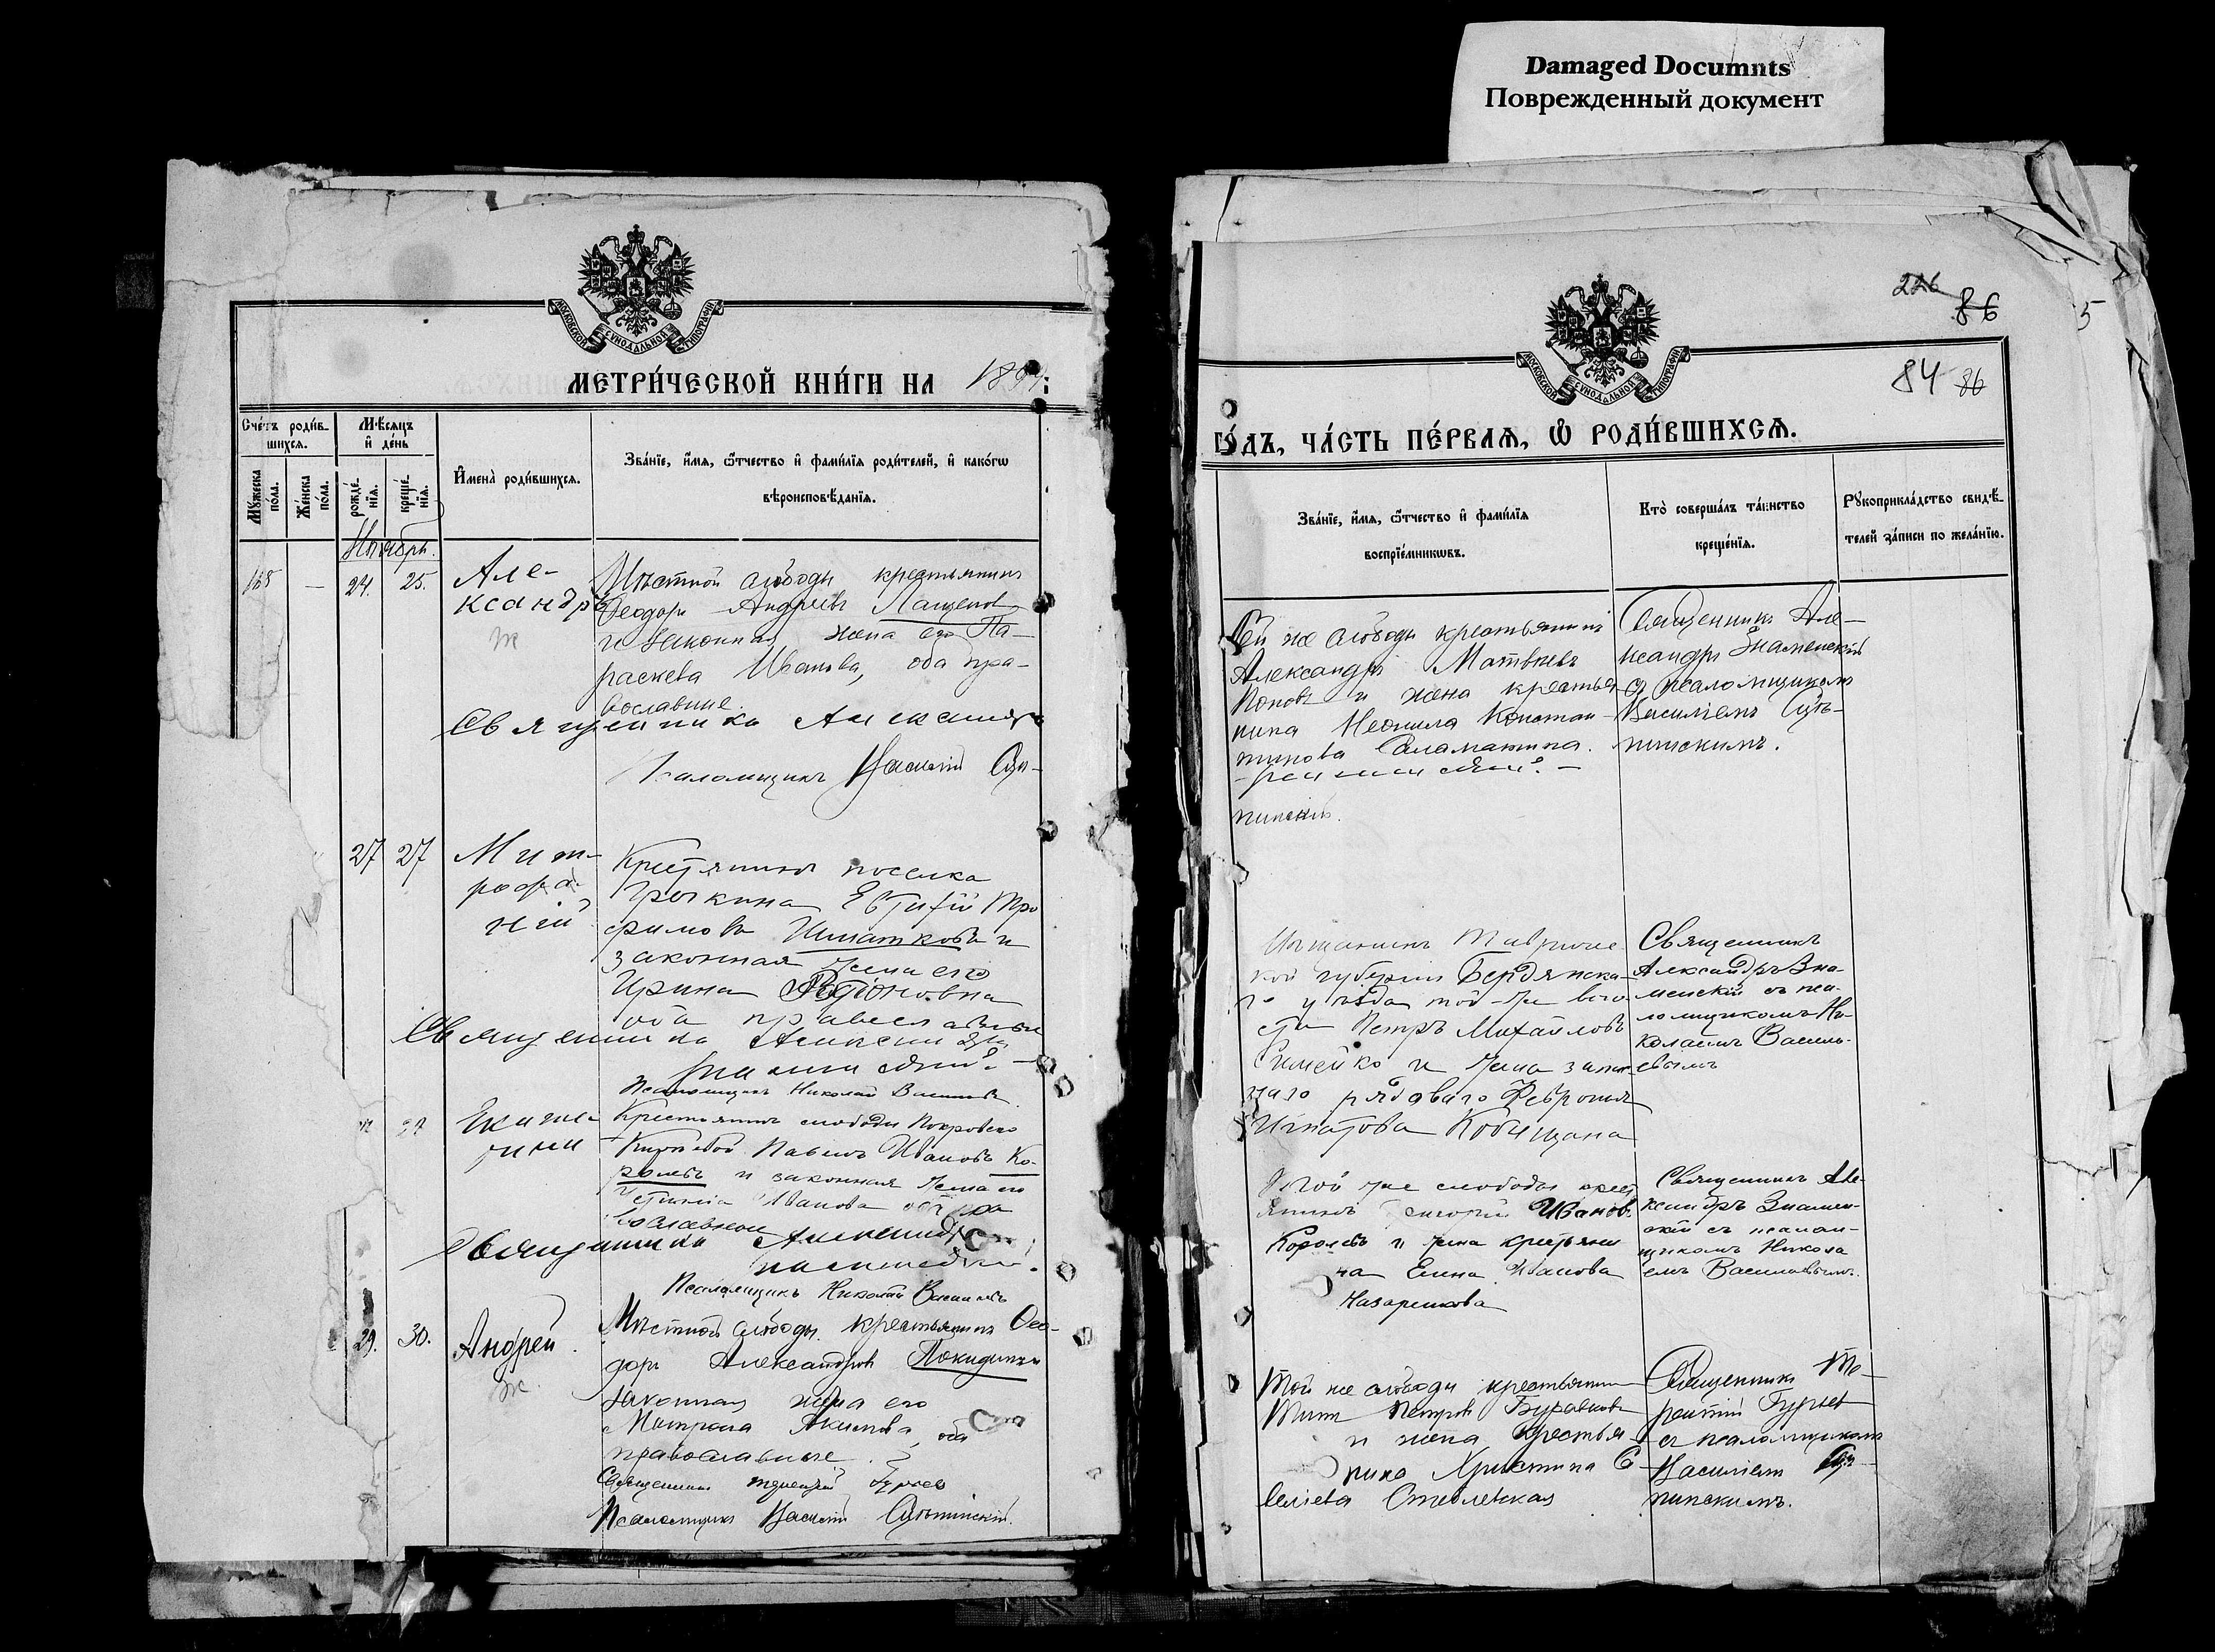 Damaged Documnts
Поврежденный документ
МОСКОВСКОЙ СУНОДАЛЬНОЙ ТИПОГРАФІИ
МЕТРИ́ЧЕСКОЙ КНИ́ГИ НА 189
Сче́тъ роди́в-
шихся.
Мѣсяцъ
и҆ де́нь
Мꙋжеска
по́ла.
Же́нска
по́ла.
рожде́-
нїя.
креще́-
нїя.
И҆мена̀ роди́вшихся.
Зва́нїе, и҆́мя, ѻ҆́тчество и҆ фами́лїя роди́телей, и҆ како́гѡ
вѣроисповѣ́данїя.
Ноябрь.
24. 25.
Але-
ксандръ
Мѣстной слободы крестьянинъ
Ѳеодоръ Андреевъ Лащенов
и законная жена его Па-
раскева Иванова, оба пра-
вославные.
Священникъ Александръ
Псаломщикъ Василій Суль-
27 27
Мит-
рофа-
ній
Крестьянинъ поселка
Евтифій Тро
фимовъ и
законная жена его
Ирина Родіоновна
оба православные
Священникъ Александръ
Знаменскій
Псаломщикъ Николай Васильевъ
27
Екате-
рина
Крестьянинъ слободы Покровско
Киреевой Павелъ Ивановъ Ко-
ролевъ и законная жена его
Иванова оба пра
вославные
Священникъ Александръ
Знаменскій.
Псаломщикъ Николай Васильевъ
29. 30.
Андрей.
Мѣстной слободы крестьянинъ Ѳео-
доръ Александровъ Покидинъ и
законная жена его
Матрона Акимова, оба
православные.
Священникъ Терентій Гурьев
Псаломщикъ Василій Сультинскій.
226
86
5
84 86
МОСКОВСКОЙ СУНОДАЛЬНОЙ ТИПОГРАФІИ
ГО́ДЪ, ЧА́СТЬ ПЕ́РВАЯ, Ѽ РОДИ́ВШИХСЯ.
Зва́нїе, и҆́мя, ѻ҆́тчество и҆ фами́лїя
воспрїе́мникѡвъ.
Кто̀ соверша́лъ та́инство
креще́нїя.
Рꙋкоприкла́дство свидѣ́-
телей за́писи по жела́нїю.
Сей же слободы крестьянинъ
Александръ Матвѣевъ
Поповъ и жена крестья-
нина Неонила Констан-
тинова Саламатина.
Священникъ Але-
ксандръ Знаменскій
съ псаломщикомъ
Василіемъ Суль-
тинскимъ.
Знаменскій.
тинскій.
Мѣщанинъ Таврическ
кой губерніи Бердянска-
го уѣзда той-же
Петръ Михайловъ
и жена запас
наго рядоваго Февронія
Игнатова
Священникъ
Александръ Зна-
менскій съ пса-
ломщикомъ Ни-
колаемъ Василь-
евымъ
Той же слободы крест
янинъ Ивановъ
Королевъ и жена крестьяни
на Елена Иванова
Назаренкова
Священникъ Але-
ксандръ Знамен-
скій съ псалом-
щикомъ Никола
емъ Васильевымъ.
Той же слободы крестьянинъ
Титъ Петровъ
и жена крестья
нина Христина Е
Священникъ Те-
рентій Гурьев
съ псаломщикомъ
Василіемъ Суль-
тинскимъ.